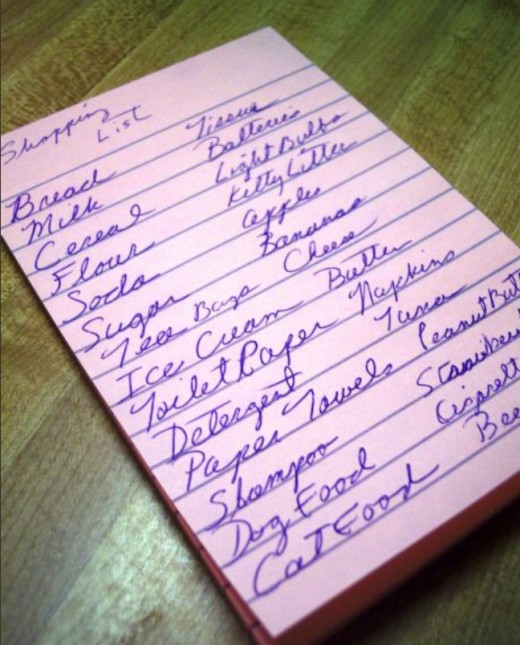 Shopping
List
Bread
Milk
Cereal
Flour
Soda
Sugar
Tea Bags
Ice Cream
Toilet Paper
Detergent
Paper Towels
Shampoo
Dog Food
Cat Food
Tissue
Batteries
Light Bulbs
Kitty Litter
apples
Bananas
Cheese
Butter
Napkins
Tuna
Peanut Butt
Bee